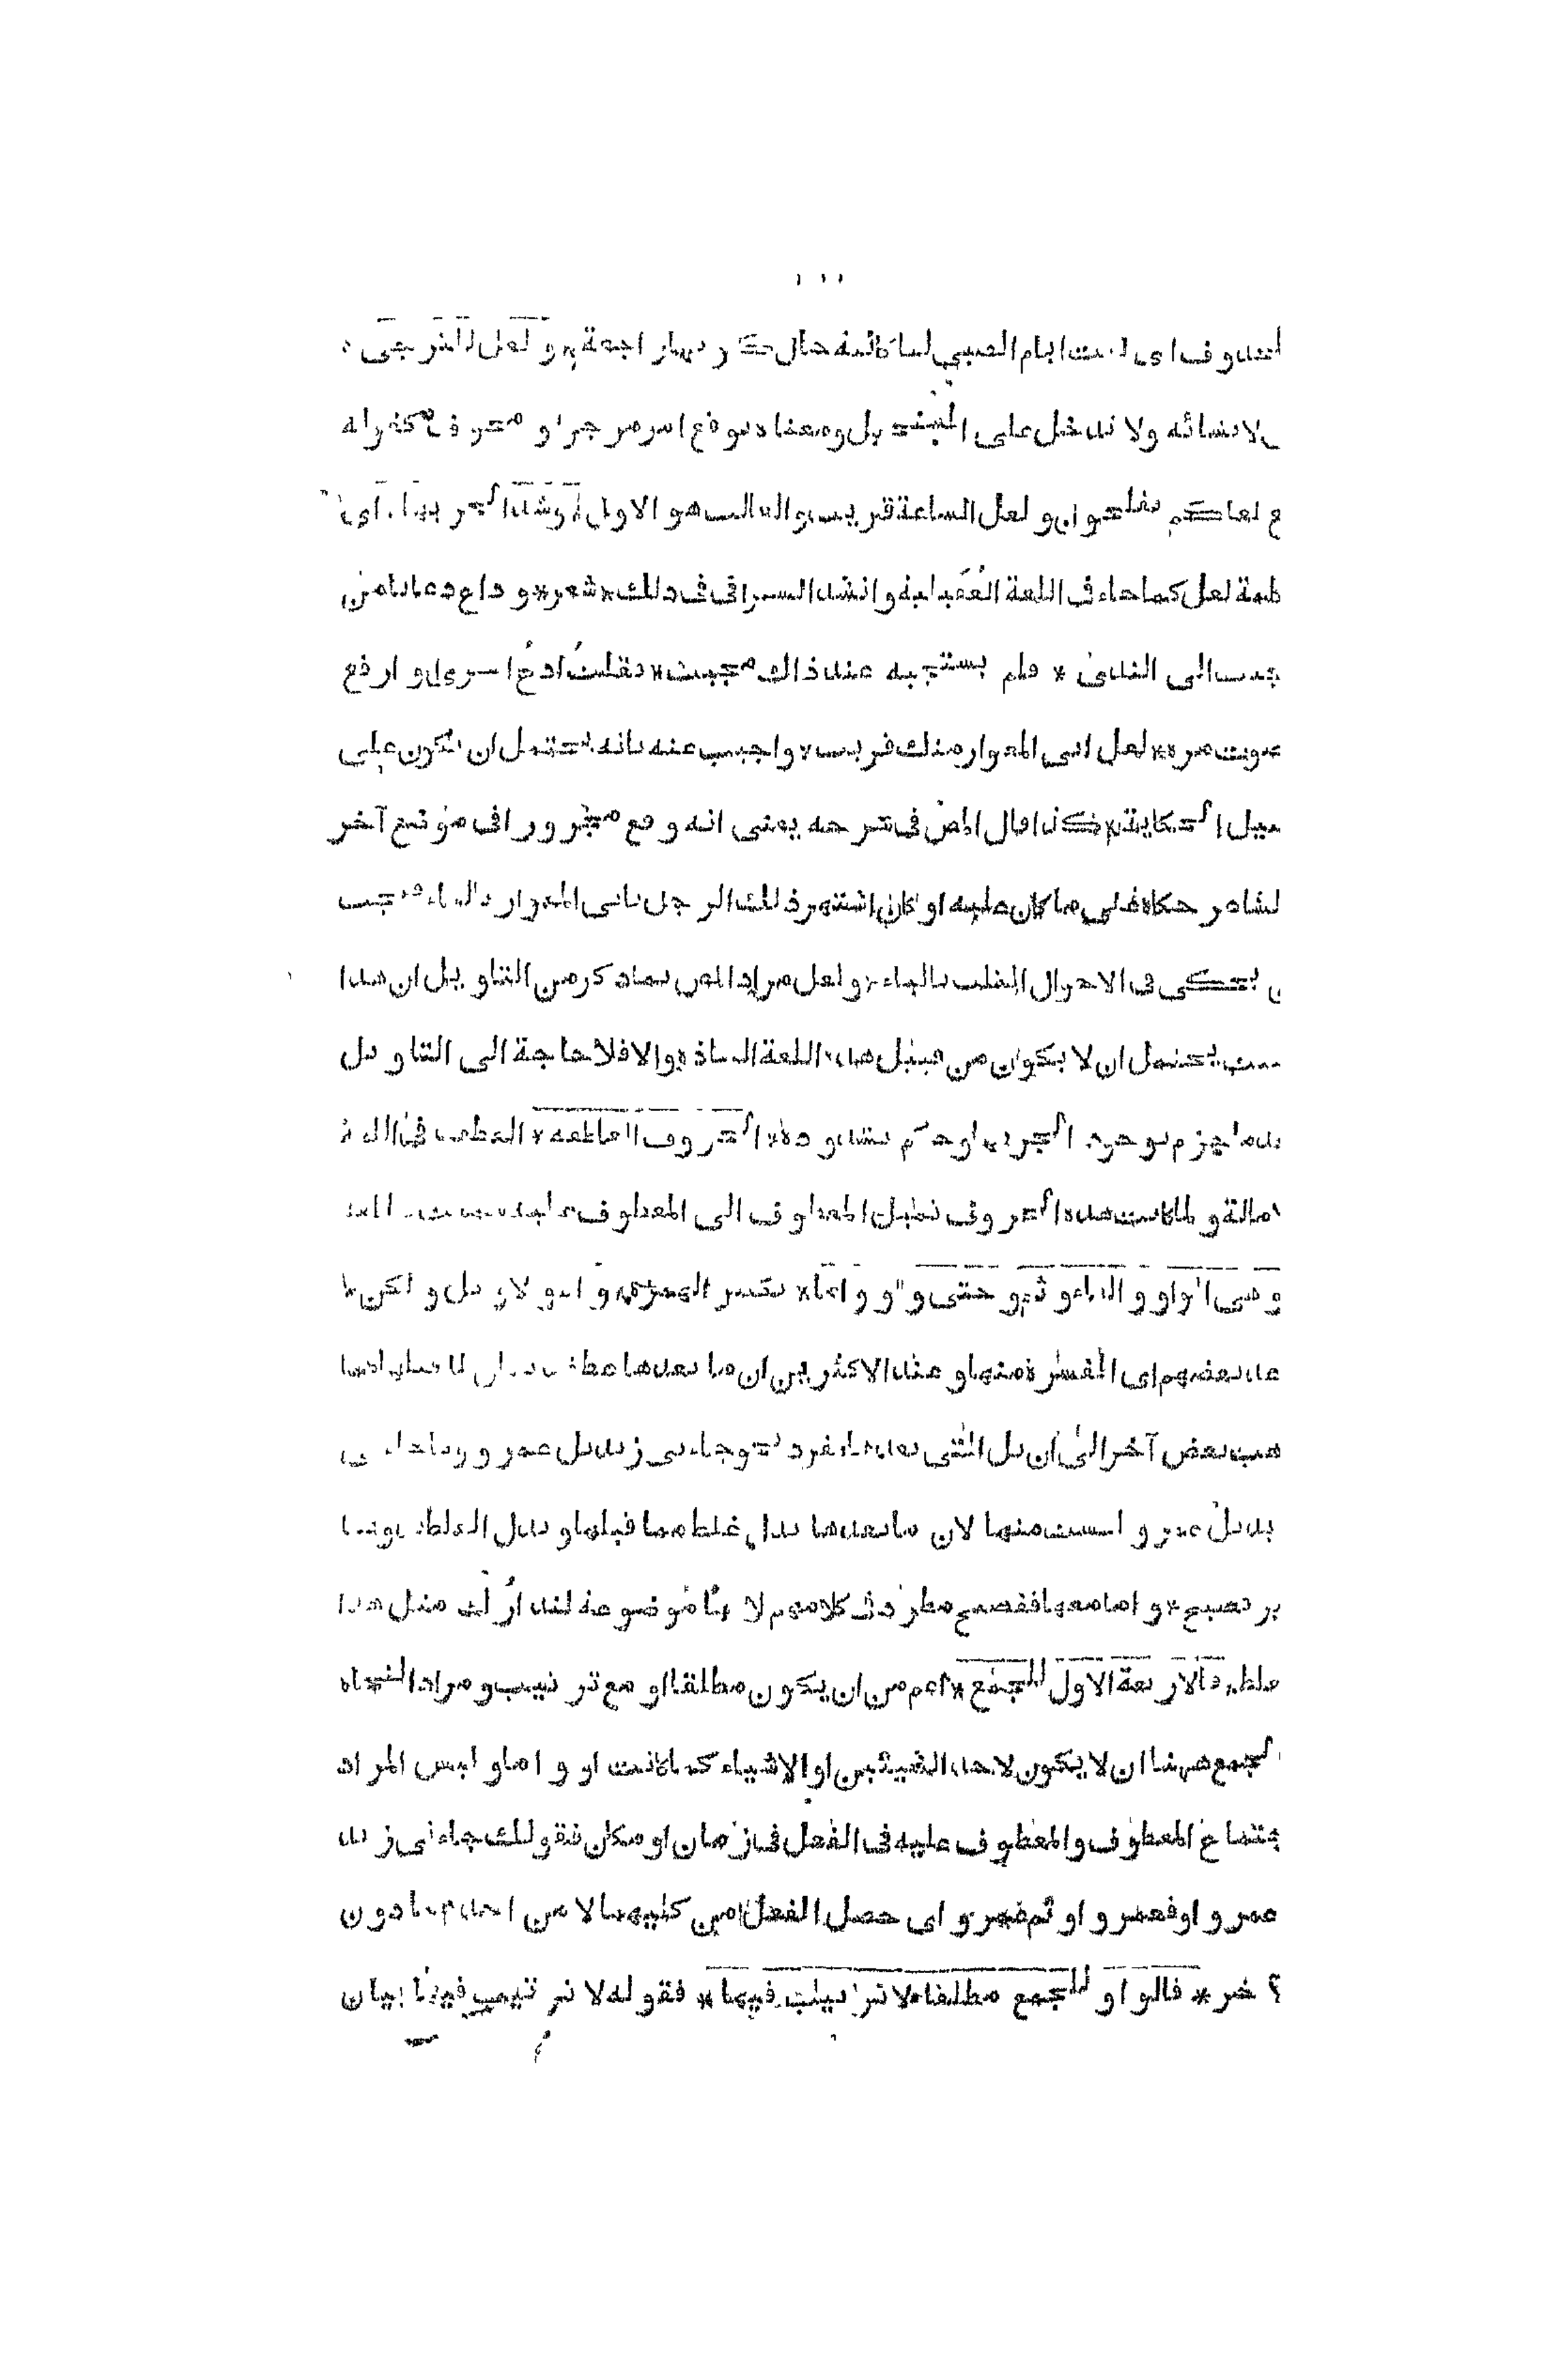 اى ليت ايام الصبى لنا كائنة حال كو نها راجعة * و لعل للترجى *
لانشائه ولا تدخل على المستحيل ومعناه توقع امر مرجو او مخوف كقوله
لعلكم تفلحون و لعل الساعة قريب والغالب هو الاول * وشذ الجر بها * اى
كلمة لعل كما جاء فى اللغة العقيلية وانشد السيرافى فى ذلك * شعر * و داع دعا يا من
يجيب الى الندى * فلم يستجبه عند ذاك مجيب * فقلت ادع اخرى و ارفع
صوت مرة * لعل ابى المغوار منك قريب * واجيب عنه بانه يحتمل ان يكون على
سبيل الحكاية كذا قال المص فى شرحه يعنى انه وقع مجرورا فى موضع آخر
الشاعر حكاه على ما كان عليه او كان اشتهر ذلك الرجل بابى المغوار بالياء فيجب
يحكى فى الاحوال الثلث بالياء * و لعل مراد المص بما ذكر من التاويل ان هذا
بيت يحتمل ان لا يكون من قبيل هذه اللغة الشاذة والا فلا حاجة الى التاويل
بعد ما جزم بوجود الجر بها وحكم بشذوذه * الحروف العاطفة * العطف فى اللغة
امالة و لما كانت هذه الحروف تميل المعطوف الى المعطوف عليه سميت
و هى الواو و الفاء و ثم و حتى و او و اما * بكسر الهمزة * و ام و لا و بل و لكن *
عد بعضهم اى المفسرة منها و عند الاكثرين ان ما بعدها عطف بيان لما قبلها
ذهب بعض آخر الى ان بل التى بعدها مفرد نحو جاءنى زيد بل عمرو و ما جاءنى
زيد بل عمرو ليست منها لان ما بعدها بدل غلط مما قبلها و بدل الغلط بدونها
غير فصيح * و اما معها ففصيح مطرد فى كلامهم لا نها موضوعة لتدارك مثل هذا
الغلط * فالاربعة الاول للجمع * اعم من ان يكون مطلقا او مع ترتيب و مراد النحاة
بالجمع ههنا ان لا يكون لاحد الشيئين او الاشياء كما كانت او و اما و ليس المراد
اجتماع المعطوف والمعطوف عليه فى الفعل فى زمان او مكان فقولك جاءنى زيد
و عمرو او فعمرو او ثم عمرو اى حصل الفعل من كليهما لا من احدهما دون
الآخر * فالواو للجمع مطلقا * لا ترتيب فيها * فقوله لا ترتيب فيها بيان